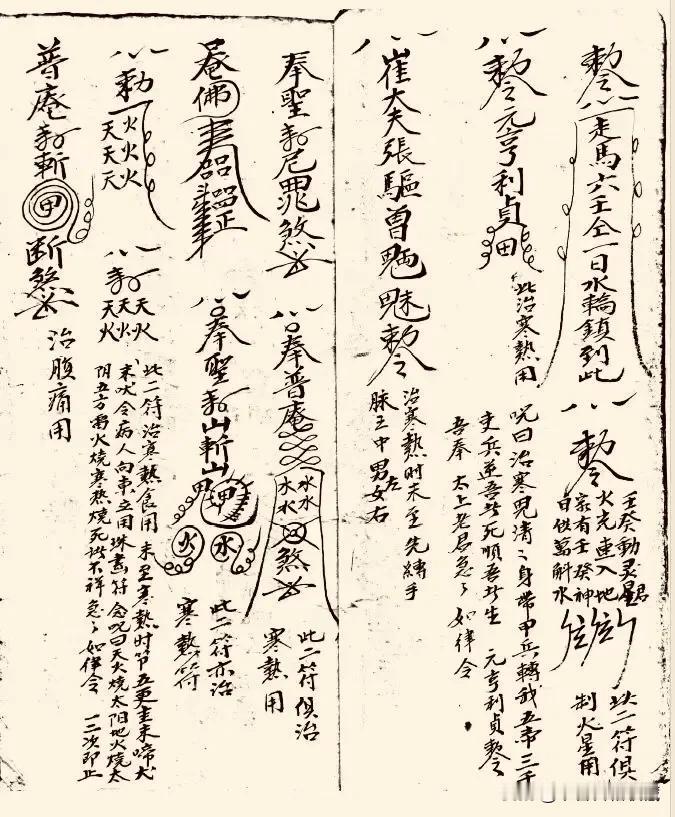 敕令 走馬六壬仝一日水輪鎮到此
敕令
壬癸動灵君
火光連入地
家有壬癸神
日供萬斛水
此二符俱
制火星用
敕令元亨利貞
此治寒熱用
咒曰治寒鬼清々身帶甲兵轉我五帝三千
吏兵逆吾者死順吾者生 元亨利貞敕令
吾奉 太上老君急々如律令
崔大夫張驅曾魎魅敕令
治寒熱时未至先縛手
脉上中男左女右
奉聖敕尼罡煞
奉普庵
水水水水
煞
此二符俱治
寒熱用
菴佛
奉聖敕山斬山
甲
火 水
此二符亦治
寒熱符
敕
火火火
天天天
敕
天天天
火火火
此二符治寒熱食用 未至寒熱时节五更圭未啼犬
未吠令病人向東立用珠畫符念咒曰天火燒太阳地火燒太
阴五方雷火燒寒热燒死諸不祥急々如律令 一二次即止
普庵敕斬
甲
断煞
治腹痛用